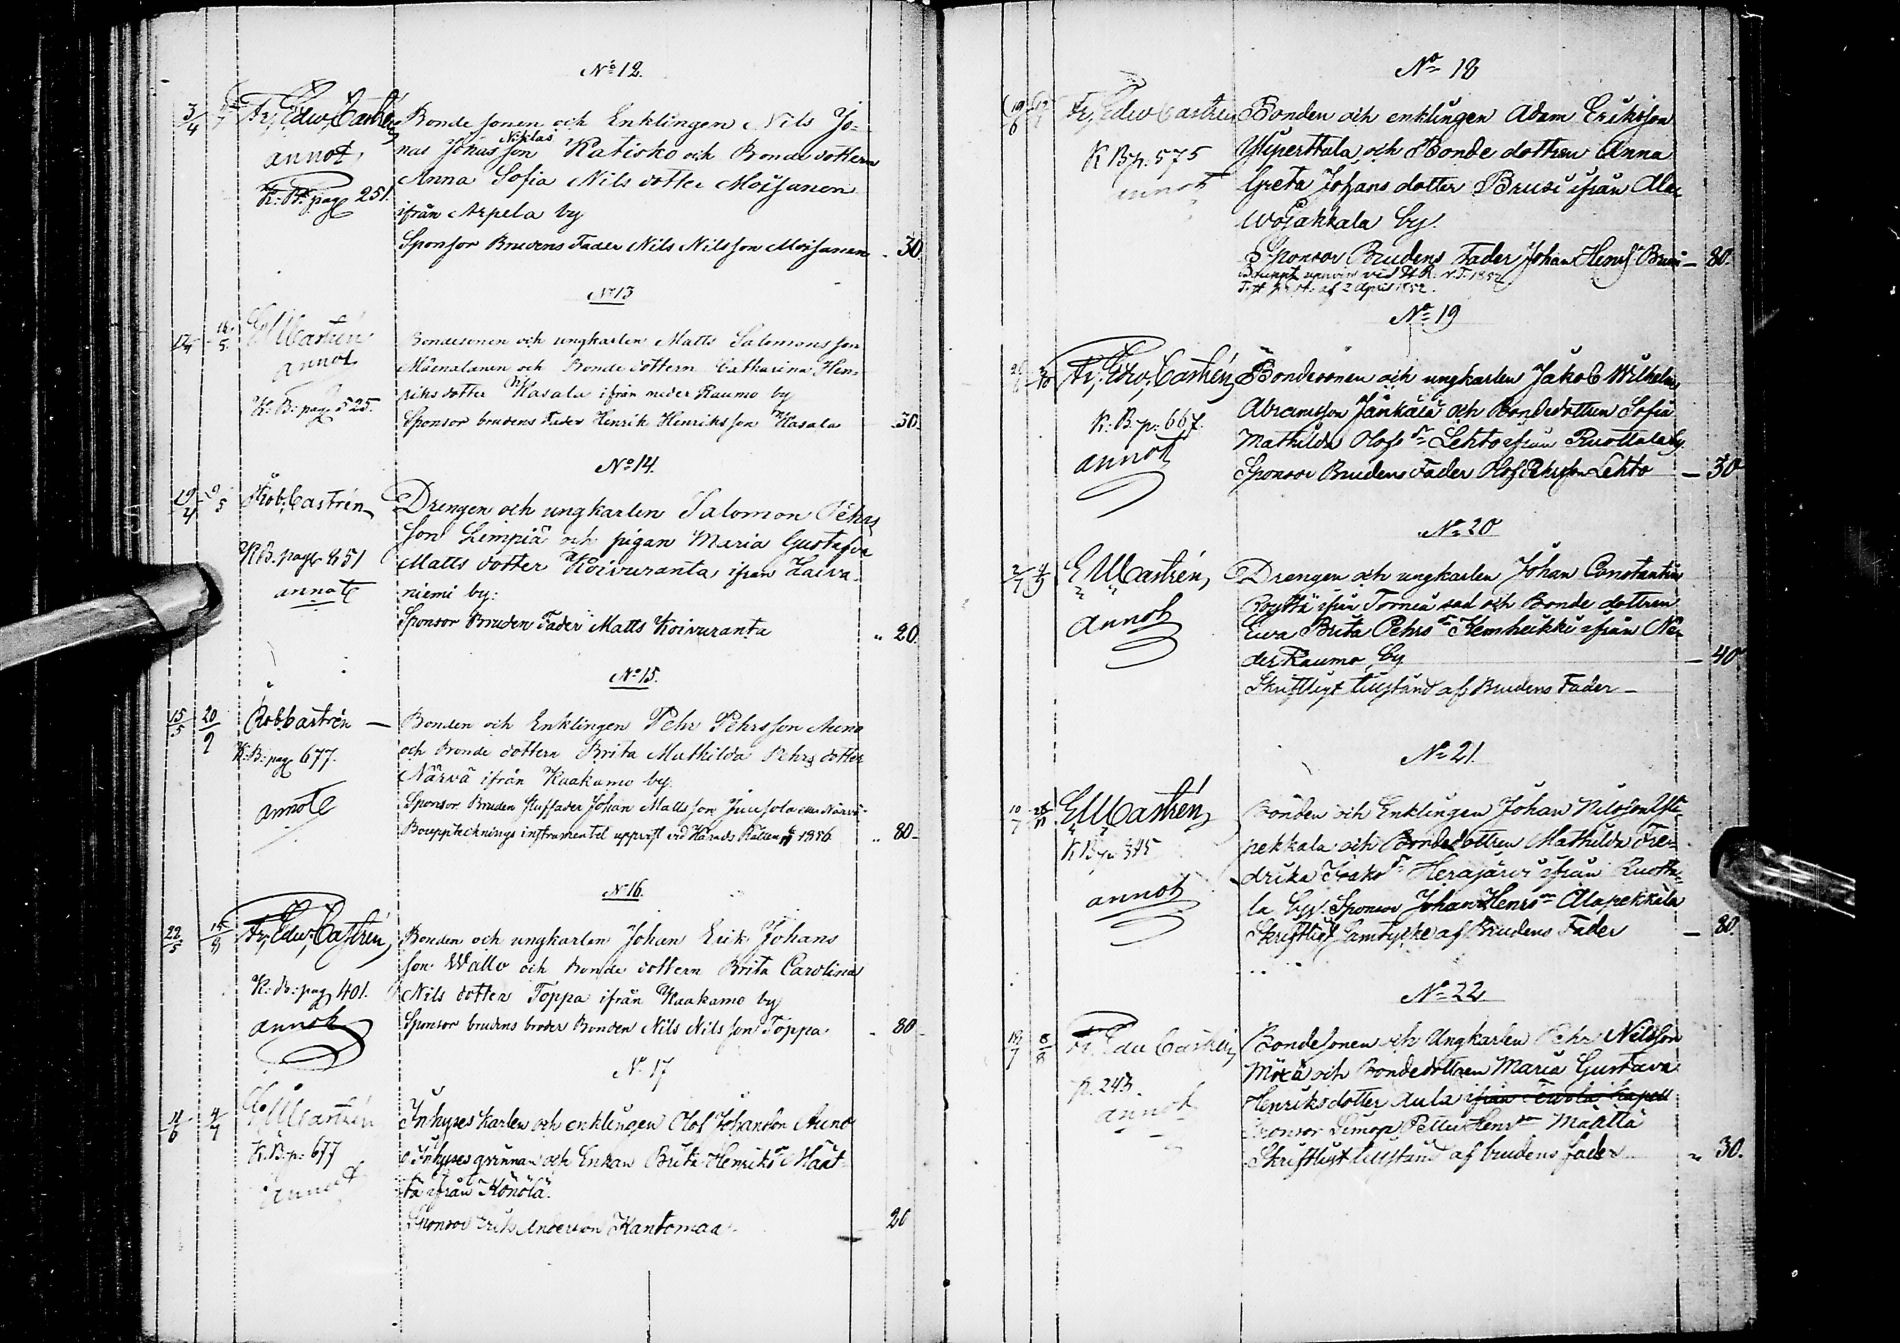 No 12.
3/4 Fr, Edw, Castrén, Bonde sonen och Enklingen Nils Jo-
annot, nas Jonas son Niklas Katisko och Bonde dottern
K: B: pag 251. Anna Sofia Nils dotter Moisanen
ifrån Arpela by
Sponsor Brudens Fader Nils Nilsson Moisanen - 30
No 13
Castrén Bondesonen och ungkarlen Matts Salomonsson
annot och Bonde dottern Catharina Hen-
K: B: pag 525. riks dotter Kasala ifrån neder Raumo by
Sponsor brudens Fader Henrik Henriksson Kasala 30
No 14.
19/4 9/5 Rob, Castrén Drengen och ungkarlen Salomon Pehrs
son Limpiä och pigan Maria Gustafva
K B. page 851 Matts dotter Koivuranta ifrån Laiva-
annot niemi by:
Sponsor Bruden Fader Matts Koivuranta " 20
No 15.
15/5 20/9 Rob Castrén — Bonden och Enklingen Pehr Pehrsson Auno
K: B: pag 677. och Bonde dottern Brita Mathilda Pehrs dotter
Närvä ifrån Kaakamo by
annot Sponsor Bruden Fader Johan Matts son Närvä
Boupptecknings instrumentet uppvist vid Härads Rätten 1856 " 80
No 16.
22/5 15/8 Fr, Edw, Castrén, Bonden och ungkarlen Johan Erik Johans
son Wallo och Bonde dottern Brita Carolina
K: B: pag 401. Nils dotter Toppa ifrån Kaakamo by
annot Sponsor brudens broder Bonden Nils Nils son Toppa - 80
No 17
11/6 4/7 Castrén Inhyses karlen och enklingen Olof Johansson Auno
K: B: p: 677 o Inhyses qvinnan och Enkan Brita Henriks dr Määt-
annot tä ifrån Könölä.
Sponsor Erik Anderson Kantomaa 20
No 18
19/6 Fr, Edw Castrén Bonden och enklingen Adam Eriksson
K B p. 575 Yliperttala och Bonde dottren Anna
annot Greta Johans dotter Bruse ifrån Ala
Wojakkala by.
Sponsor Brudens Fader Johan Henrs Bruse — 80
No 19
Fr, Edw, Castrén, Bondesonen och ungkarlen Jakob Wilhelm
K: B. p: 667. Abramsson Jänkälä och Bondedottren Sofia
annot Mathilda Olofs dr Lehto ifrån Ruottala by
Sponsor Brudens Fader Olof Pehrsson Lehto — 30
No 20
2/7 E M Castrén, Drengen och ungkarlen Johan Constantin
annot Röyttä ifrån Torneå stad och Bonde dottren
Ewa Brita Pehrs dr Kemheikki ifrån Ne-
der Raumo by — 40
Skriftligt tillstånd af Brudens Fader —
No 21.
10/7 E M Castrén, Bonden och Enklingen Johan Nilsson Yli-
K B p 345 pekkala och Bondedottren Mathilda Fre-
annot drika Isaks dr Herajärvi ifrån Ruotta-
la by. Sponsor Johan Henrs n Alapekkala
Skriftligt samtycke af Brudens Fader — 80.
No 22.
8/8 Fr, Edw Castrén, Bondesonen och Ungkarlen Pehr Nilsson
p. 243. och Bondedottren Maria Gustava
annot Henriksdotter ifrån
Sponsor Simon Petter Henrs n Määttä
Skriftligt tillstånd af brudens fader " 30.